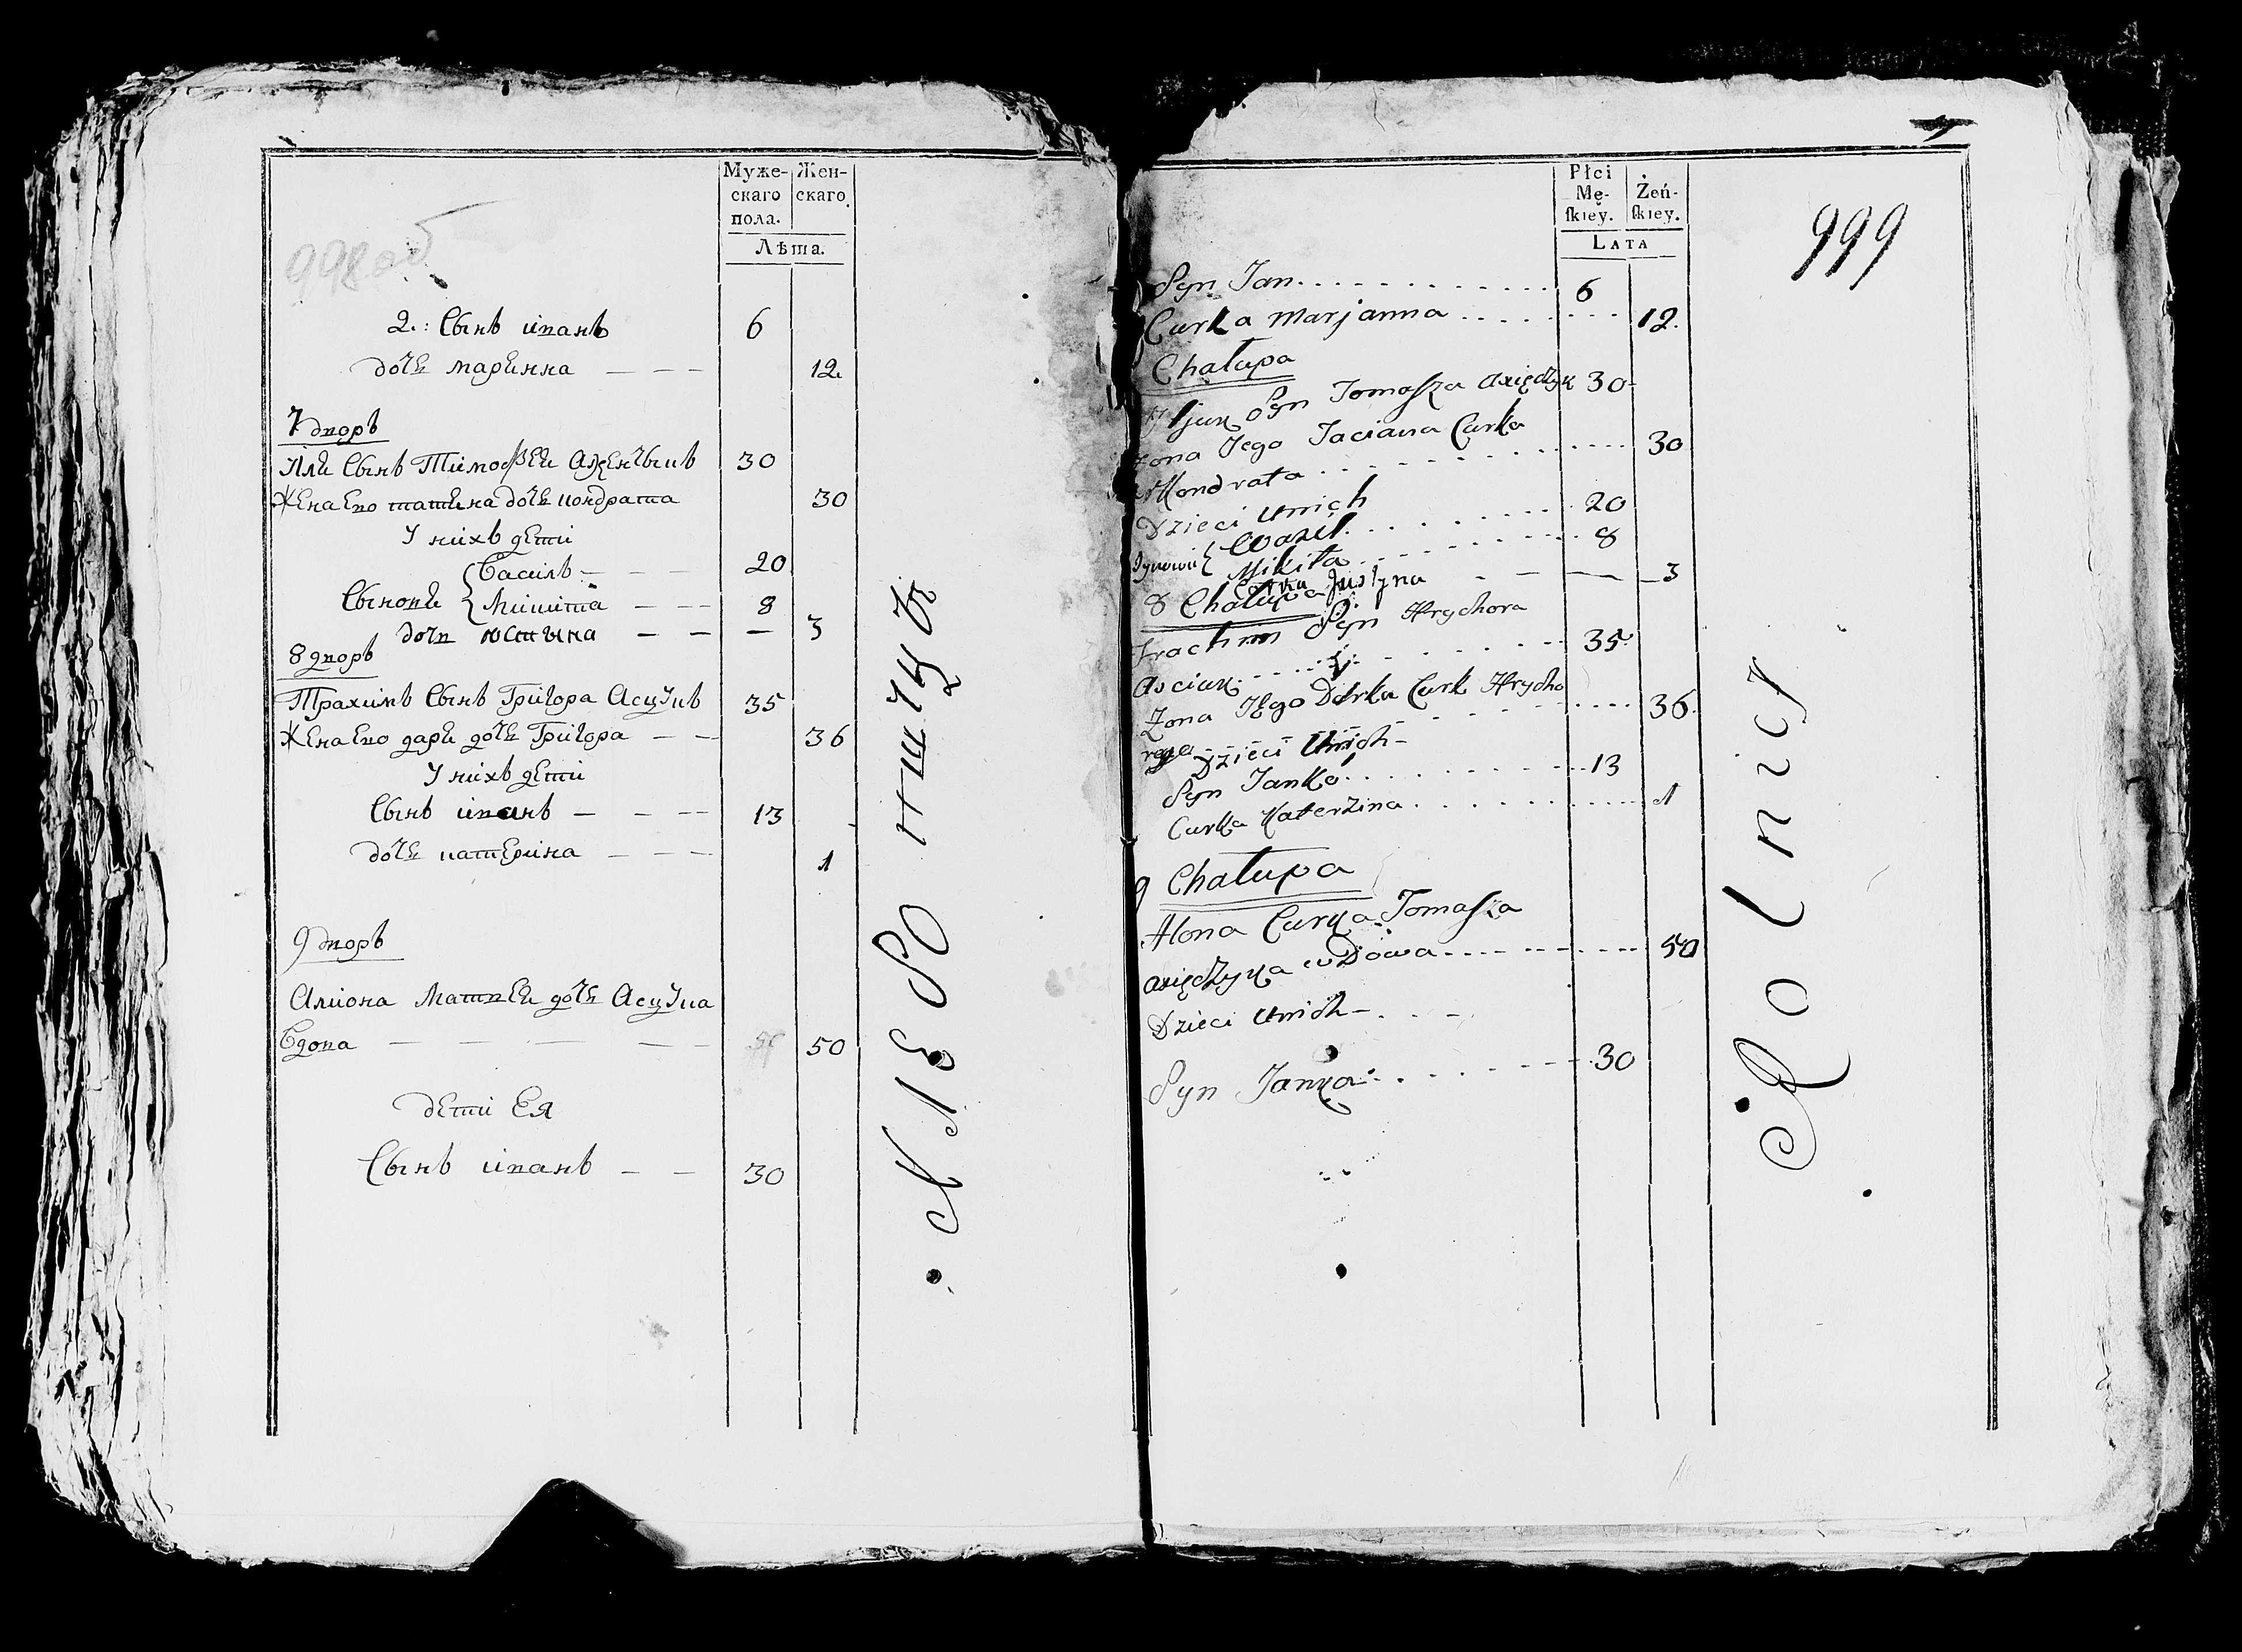 Муже-
скаго
пола.
Жен-
скаго.
Лѣта.
998об
2.: Сынъ иванъ 6
дочь марянна — — — 12.
7 дворъ
Или Сынъ Тимофѣи 30
Жена Ево татяна дочь кондрата 30
У нихъ дети
Василь — — — 20
Сынови { Микита — — — 8
дочь юстына — — — 3
8 дворъ
Трахимъ Сынъ Григора Асцукъ 35
Жена Ево даря дочь Григора — — 36
У нихъ дети
Сынъ иванъ — — — 13
дочь катерина — — — 1
9 дворъ
Алиона Матвеи дочь Асцука
Вдова — — — — — 50
дети Ея
Сынъ иванъ — — 30
Płci
Mę-
ſkiey.
Żeń-
ſkiey.
LATA
999
Syn Jan............. 6
Curka Marjanna ........ 12.
Chałupa
Syn Tomaſza Axiędzyk 30
Zona Jego Taciana Curka
Kondrata ............ 30
Dzieci Unich
Synowie { Wazil......... 20
Mikita......... 8
Curka Justyna - — — 3
8 Chałupa
Trachim Syn Hrychora
Asciuk............ 35.
Zona Jego Dorka Curk Hrycho
rego ........ 36.
Dzieci Unich -
Syn Janko......... 13
Curka Katerzina ......... 1
9 Chałupa
Alona Curka Tomaſza
Axiędzyka wdowa......... 50
Dzieci Unich - . . -
Syn Janka......... 30
Rolnicy